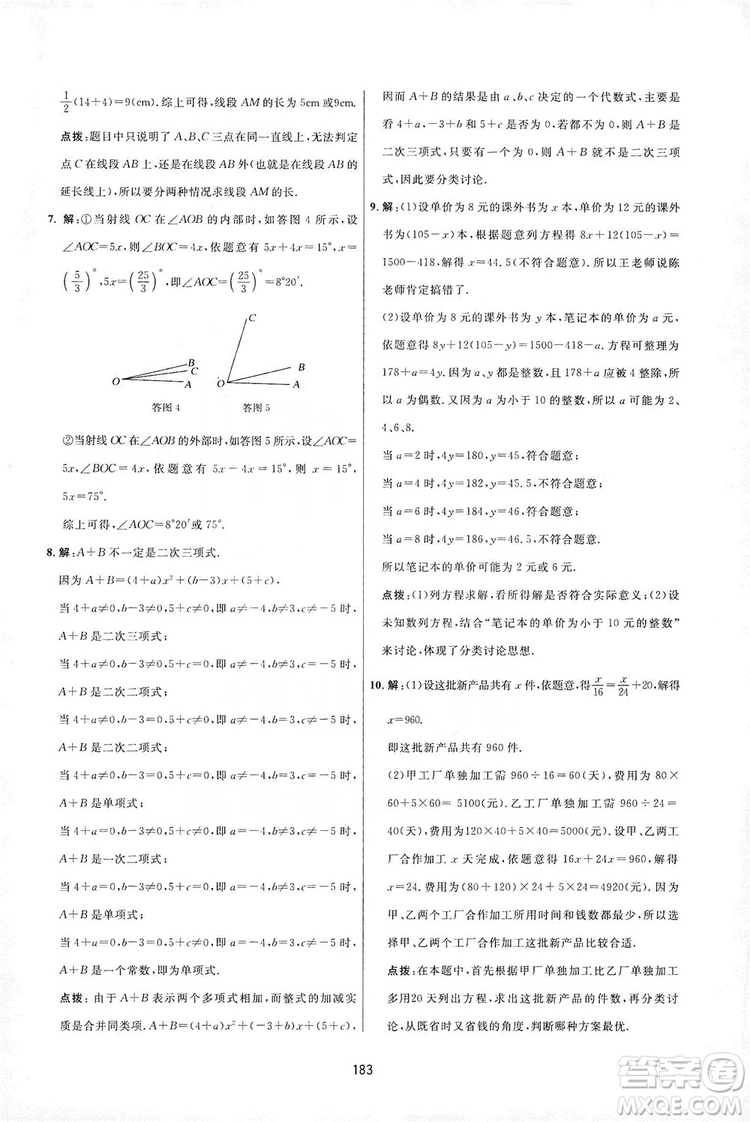 1/2(14+4)=9(cm).综上可得,线段 AM 的长为 5cm 或 9cm.
点拨:题目中只说明了 A、B、C 三点在同一直线上,无法判定
点 C 在线段 AB 上,还是在线段 AB 的延长线上(或线段 BA 的
延长线上),所以要分两种情况求线段 AM 的长.
7. 解:①当射线 OC 在∠AOB 的内部时,如答图 4 所示,设
∠AOC=5x,∠BOC=4x,依题意有 5x+4x=15°,x=
(5/3)°,5x=(25/3)°,即∠AOC=8°20′.
C
B
C
A
O
B
A
O
答图 4 答图 5
②当射线 OC 在∠AOB 的外部时,如答图 5 所示,设∠AOC=
5x,∠BOC=4x,依题意有 5x-4x=15°,x=15°,则∠AOC=
5x=75°.
综上可得,∠AOC=8°20′或 75°.
8. 解:A+B 不一定是二次三项式.
因为 A+B=(4+a)x²+(b-3)x+(5+c),
当 4+a≠0,b-3≠0,5+c≠0,即 a≠-4,b≠3,c≠-5 时,
A+B 是二次三项式;
当 4+a=0,b-3≠0,5+c≠0,即 a=-4,b≠3,c≠-5 时,
A+B 是一次二项式;
当 4+a≠0,b-3=0,5+c≠0,即 a≠-4,b=3,c≠-5 时,
A+B 是二次二项式;
当 4+a≠0,b-3≠0,5+c=0,即 a≠-4,b≠3,c=-5 时,
A+B 是二次二项式;
当 4+a≠0,b-3=0,5+c=0,即 a≠-4,b=3,c=-5 时,
A+B 是单项式;
当 4+a=0,b-3≠0,5+c=0,即 a=-4,b≠3,c=-5 时,
A+B 是一次单项式;
当 4+a=0,b-3=0,5+c≠0,即 a=-4,b=3,c≠-5 时,
A+B 是单项式;
当 4+a=0,b-3=0,5+c=0,即 a=-4,b=3,c=-5 时,
A+B 是一个常数,即为单项式.
点拨:由于 A+B 表示两个多项式相加,而整式的加减实
质是合并同类项.A+B=(4+a)x²+(-3+b)x+(5+c),
因而 A+B 的结果是由 a、b、c 决定的一个代数式,主要是
看 4+a,-3+b 和 5+c 是否为 0,若都不为 0,则 A+B 是
二次三项式,只要有一个为 0,A+B 就不是二次三项式,
因此要分类讨论.
9. 解:(1)设单价为 8 元的课外书为 x 本,单价为 12 元的课外
书为(105-x)本,根据题意列方程得 8x+12(105-x)=
1500-418,解得 x=44.5(不符合题意).所以王老师说陈
老师肯定搞错了.
(2)设单价为 8 元的课外书为 y 本,笔记本的单价为 a 元.
依题意得 8y+12(105-y)=1500-418-a.方程可整理为
178+a=4y.因为 a、y 都是整数,且 178+a 应被 4 整除,所以
a 为偶数.又因为 a 为小于 10 的整数,所以 a 可能为 2、
4、6、8.
当 a=2 时,4y=180,y=45,符合题意;
当 a=4 时,4y=182,y=45.5,不符合题意;
当 a=6 时,4y=184,y=46,符合题意;
当 a=8 时,4y=186,y=46.5,不符合题意.
所以笔记本的单价可能为 2 元或 6 元.
点拨:(1)列方程求解,看所得解是否符合实际意义;(2)设
未知数列方程,结合“笔记本的单价为小于 10 元的整数”
来讨论,体现了分类讨论思想.
10. 解:(1)设这批新产品共有 x 件,依题意,得x/16=x/24+20,解得
x=960.
即这批新产品共有 960 件.
(2)甲工厂单独加工需 960÷16=60(天),费用为 80×
60+5×60=5100(元).乙工厂单独加工需 960÷24=
40(天),费用为 120×40+5×40=5000(元).设甲、乙两工厂
合作加工 x 天完成,依题意得 16x+24x=960,解得
x=24.费用为(80+120)×24+5×24=4920(元).因为
甲、乙两个工厂合作加工所用时间和钱数都最少,所以选
择甲、乙两工厂合作加工这批新产品比较合适.
点拨:在本题中,首先根据甲厂单独加工比乙厂单独加工
多用20 天列出方程,求出这批新产品的件数,再分类讨
论,从既省时又省钱的角度,判断哪种方案最优.
183
答案圈
MXQE.COM